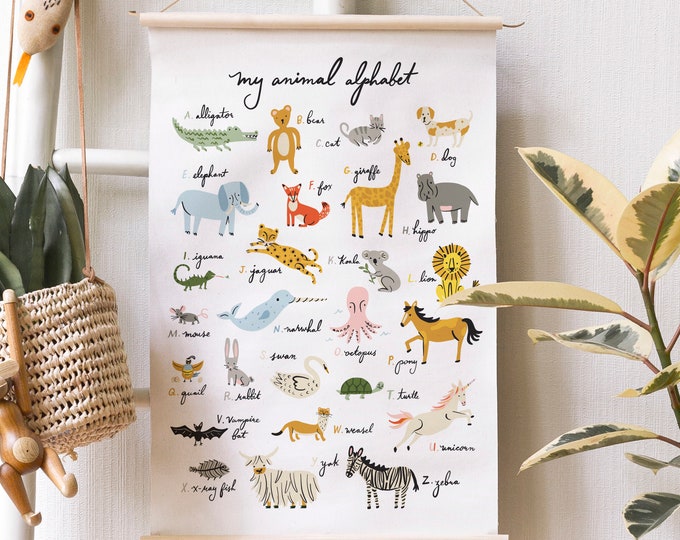 my animal alphabet
A. alligator
B. bear
C. cat
D. dog
E. elephant
F. fox
G giraffe
H. hippo
I. iguana
J. jaguar
K. Koala
L. lion
M. mouse
N. narwhal
O. octopus
P. pony
Q. quail
R. rabbit
S. swan
T. turtle
U. unicorn
V. Vampire
bat
W. weasel
X. x-ray fish
Y yak
Z. zebra